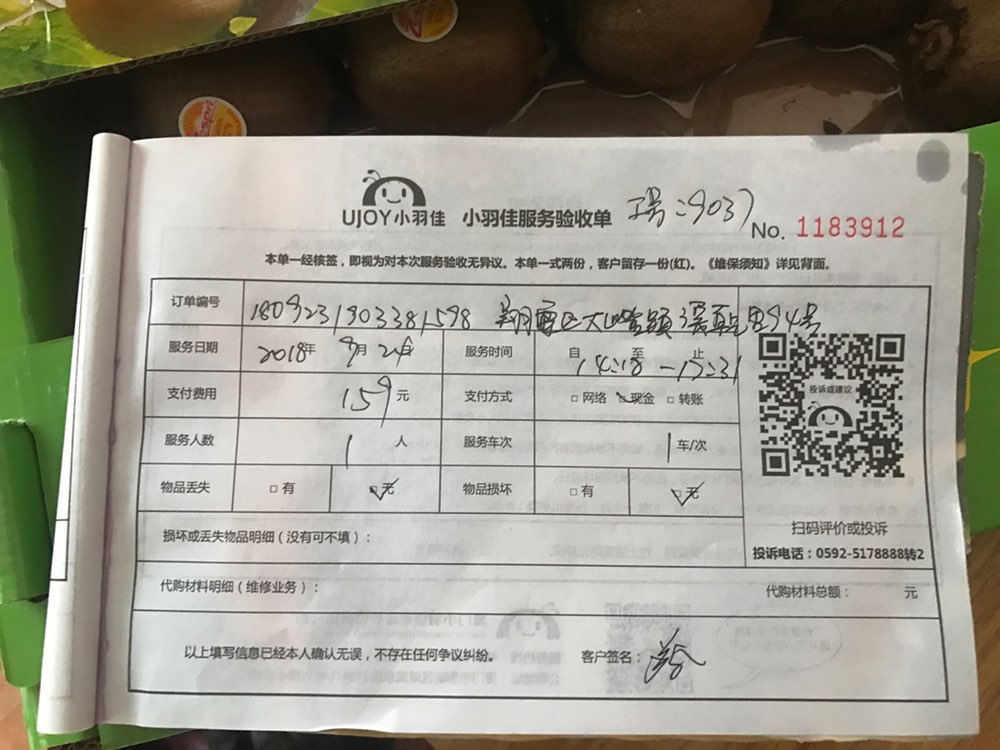 UJOY小羽佳 小羽佳服务验收单 工号:9037
No. 1183912
本单一经核签，即视为对本次服务验收无异议。本单一式两份，客户留存一份(红)。《维保须知》详见背面。
订单编号 1809231903381598 翔安区大嶝镇 94号
服务日期 2018年 9月 24日 服务时间 自 14:18 至 止 17:31
支付费用 159 元 支付方式 □ 网络 □ 现金 □ 转账
服务人数 1 人 服务车次 1 车/次
物品丢失 □ 有 □ 无 物品损坏 □ 有 □ 无
投诉或建议
损坏或丢失物品明细（没有可不填）：
扫码评价或投诉
投诉电话：0592-5178888转2
代购材料明细（维修业务）： 代购材料总额： 元
以上填写信息已经本人确认无误，不存在任何争议纠纷。 客户签名：